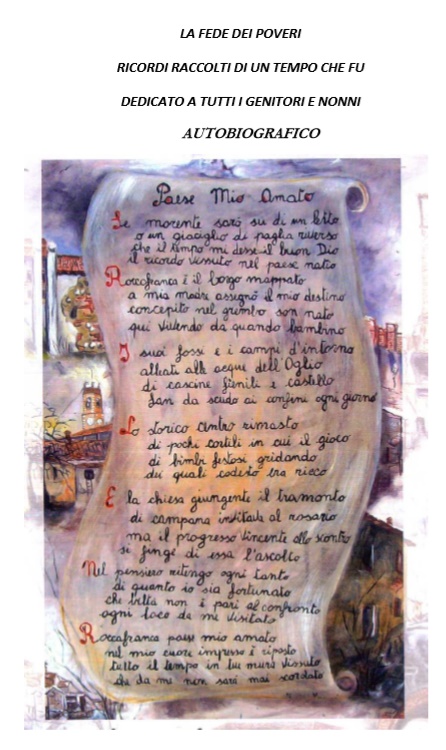 LA FEDE DEI POVERI
RICORDI RACCOLTI DI UN TEMPO CHE FU
DEDICATO A TUTTI I GENITORI E NONNI
AUTOBIOGRAFICO
Paese Mio Amato
Se morente sarò su di un letto
o un giaciglio di paglia riverso
che il tempo mi desse il buon Dio
il ricordo vissuto nel paese natio
Roccafranca è il borgo mappato
a mia madre assegnò il mio destino
concepito nel grembo son nato
qui vivendo da quando bambino
I suoi fossi e i campi d'intorno
alleati alle acque dell'Oglio
di cascine fienili e castello
fan da scudo ai confini ogni giorno
Lo storico centro rimasto
di pochi cortili in cui il gioco
di bimbi festosi gridando
dei quali codesto era ricco
E la chiesa giungente il tramonto
di campana invitava al rosario
ma il progresso vincente allo scontro
si finge di essa l'ascolto
Nel pensiero ritengo ogni tanto
di quanto io sia fortunato
che città non è pari al confronto
ogni loco da me visitato
Roccafranca paese mio amato
nel mio cuore impresso è riposto
tutto il tempo in tue mura vissuto
che da me non sarà mai scordato